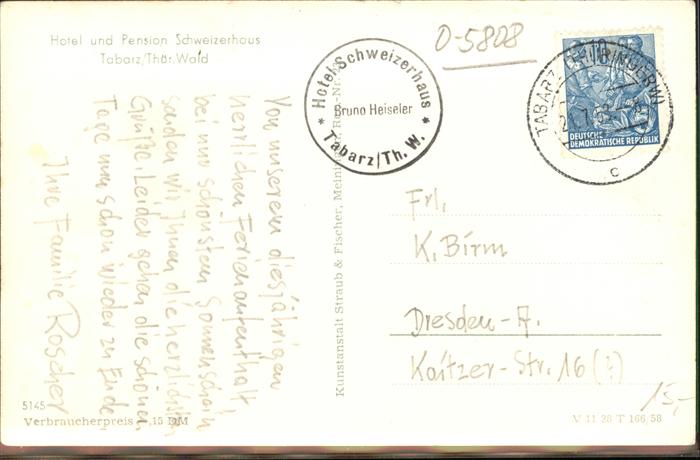 Hotel und Pension Schweizerhaus
Tabarz/Thür. Wald
0-5808
* Hotel Schweizerhaus *
Bruno Heiseler
Tabarz/Th. W.
DEUTSCHE
DEMOKRATISCHE REPUBLIK
C
Von unserem diesjährigen
herrlichen Ferienaufenthalt
bei nur schönstem Sonnenschein
senden wir Ihnen die herzlichsten
Grüße. Leider gehen die schönen
Tage nun schon wieder zu Ende.
Ihre Familie Roscher
Kunstanstalt Straub & Fischer, Meiningen
Frl.
K. Birm
Dresden-A.
Kaitzer-Str. 16 (?)
15,-
5145
Verbraucherpreis -,15 DM
V 11 28 T 166/58